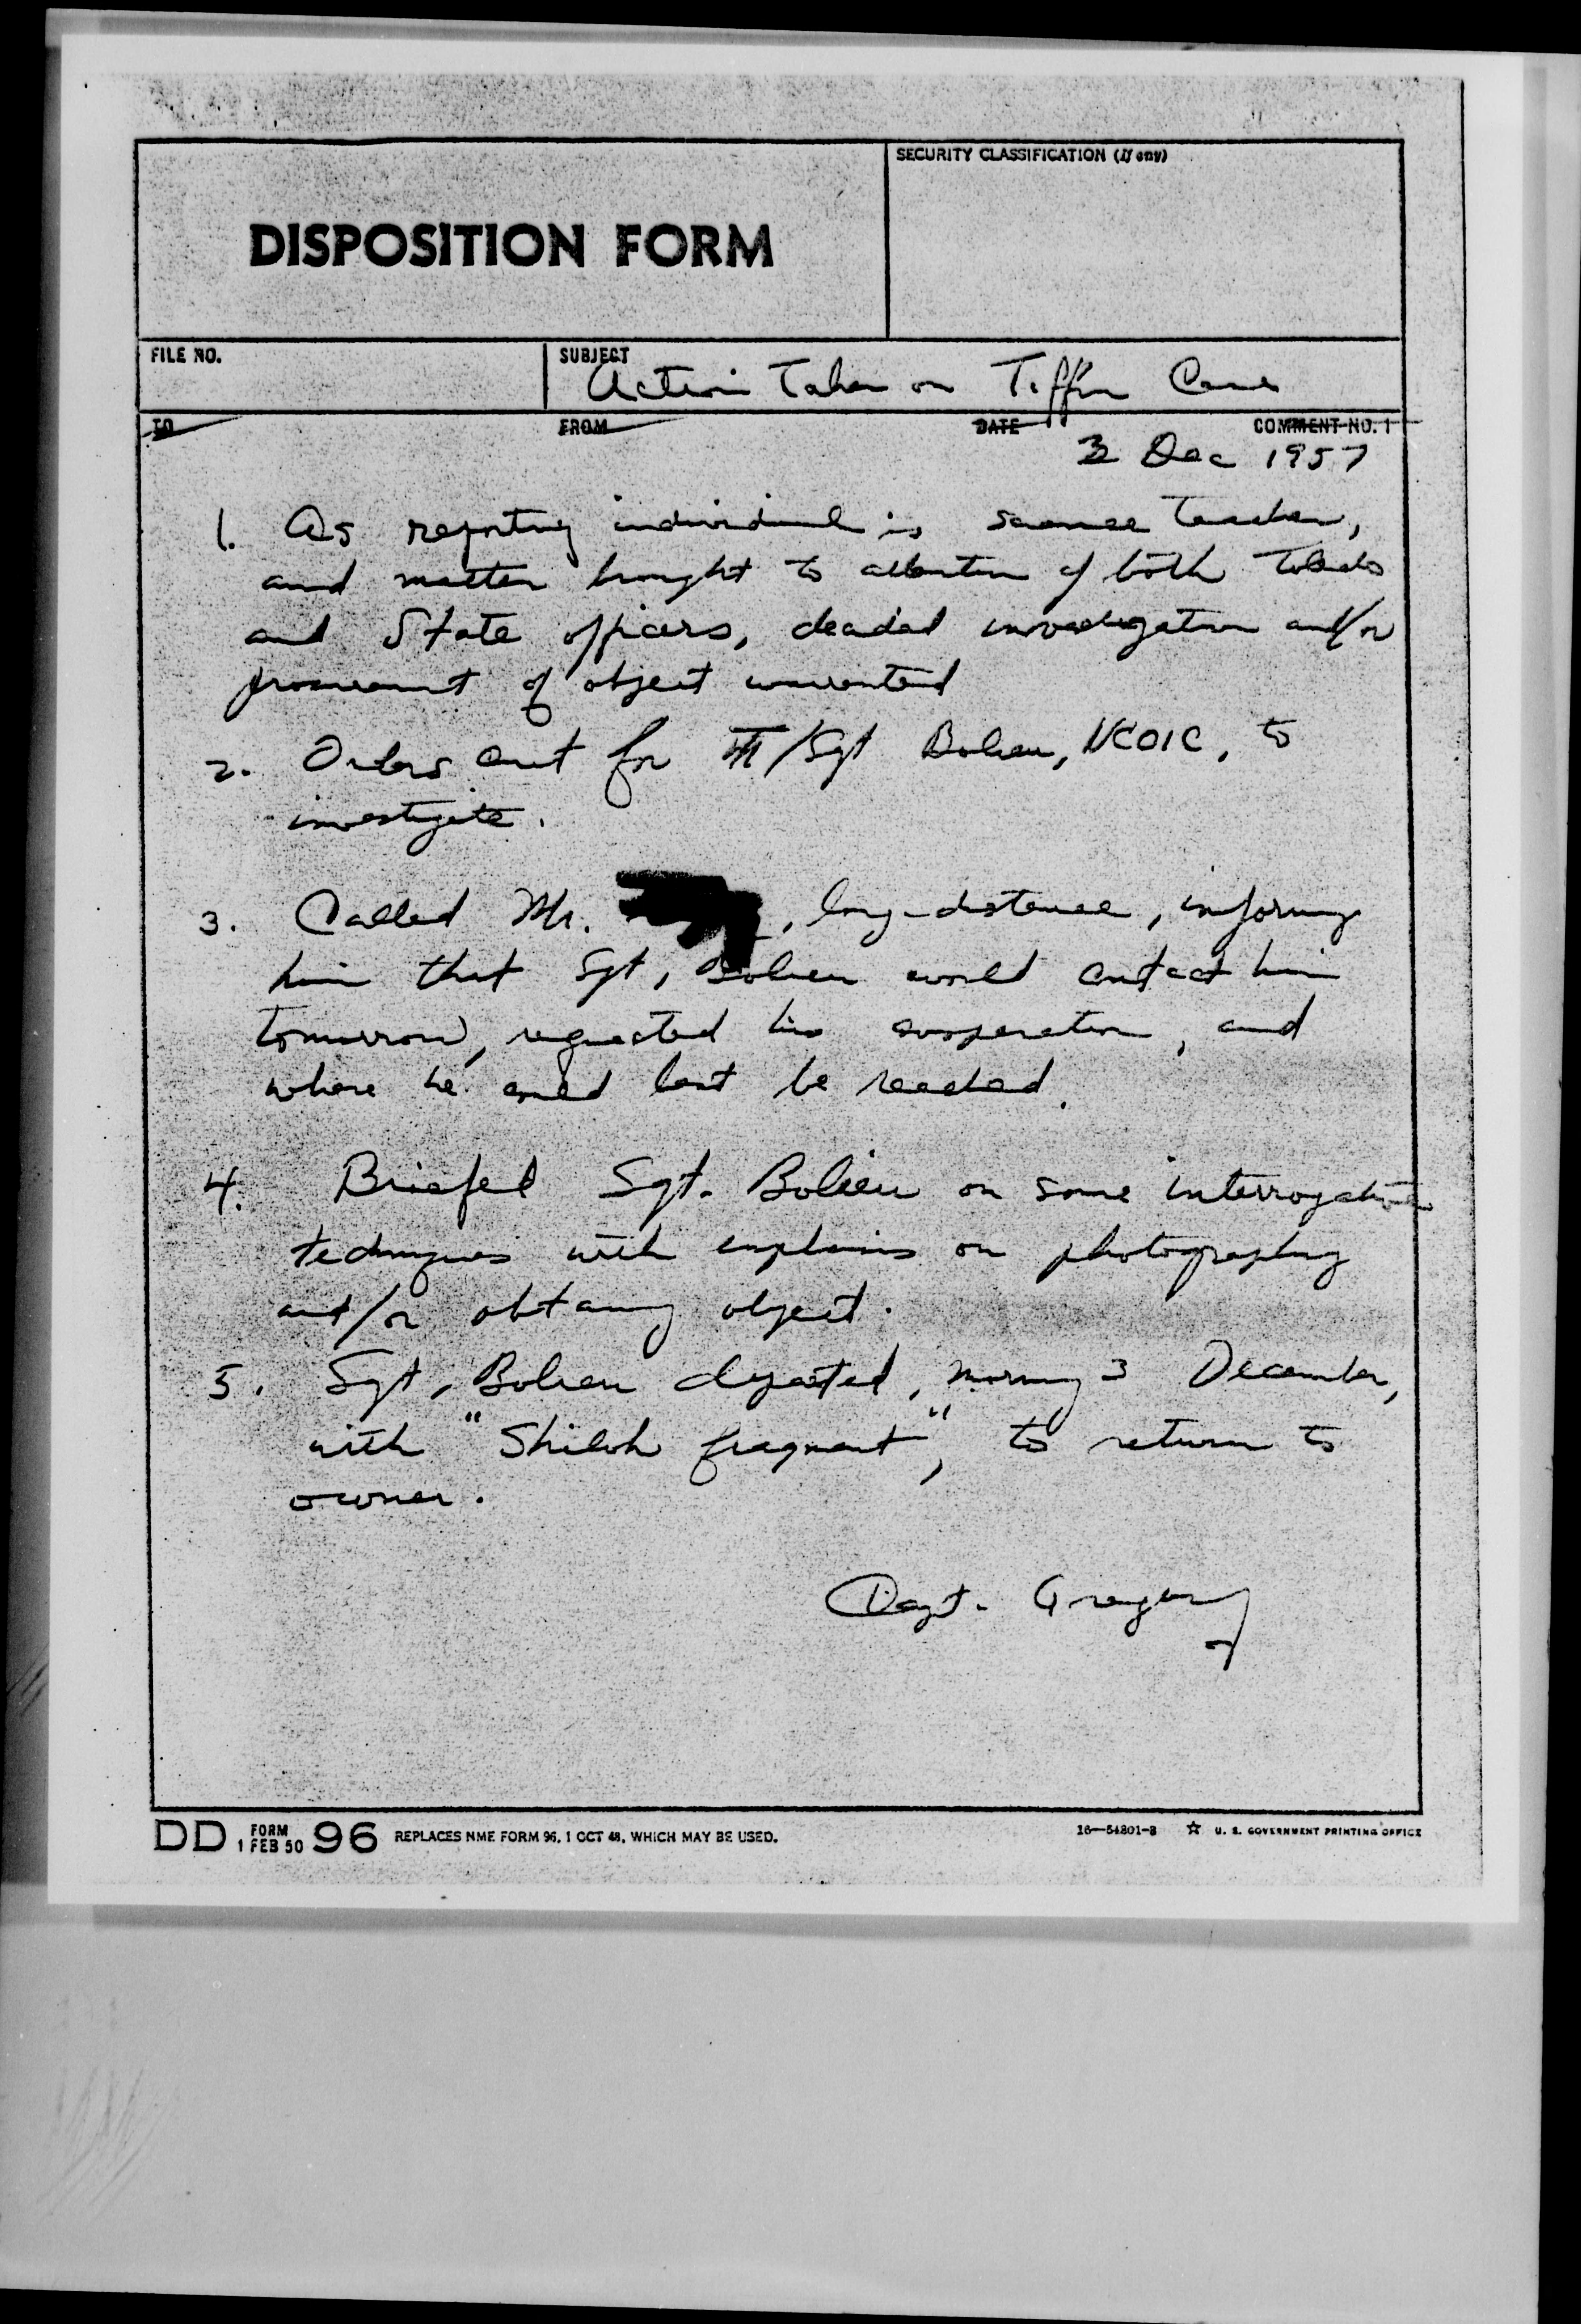 SECURITY CLASSIFICATION (If any)
DISPOSITION FORM
FILE NO.
SUBJECT
Action Taken on Tiffin Case
TO FROM DATE COMMENT NO. 1
3 Dec 1957
1. As reporting individual is science teacher,
and matter brought to attention of both Toledo
and State officers, decided investigation and/or
procurement of object warranted
2. Orders cut for T/Sgt Bolieu, NCOIC, to
investigate.
3. Called Mr. , long-distance, informing
him that Sgt, Bolieu would contact him
tomorrow, requested his cooperation, and
where he could best be reached.
4. Briefed Sgt. Bolieu on some interrogation
techniques with emphasis on photography
and/or obtaining object.
5. Sgt, Bolieu departed, morning 3 December,
with "Shiloh fragment", to return to
owner.
Capt. Gregory
DD FORM 1 FEB 50 96 REPLACES NME FORM 96, 1 OCT 48, WHICH MAY BE USED.
16—54801-3 ☆ U. S. GOVERNMENT PRINTING OFFICE